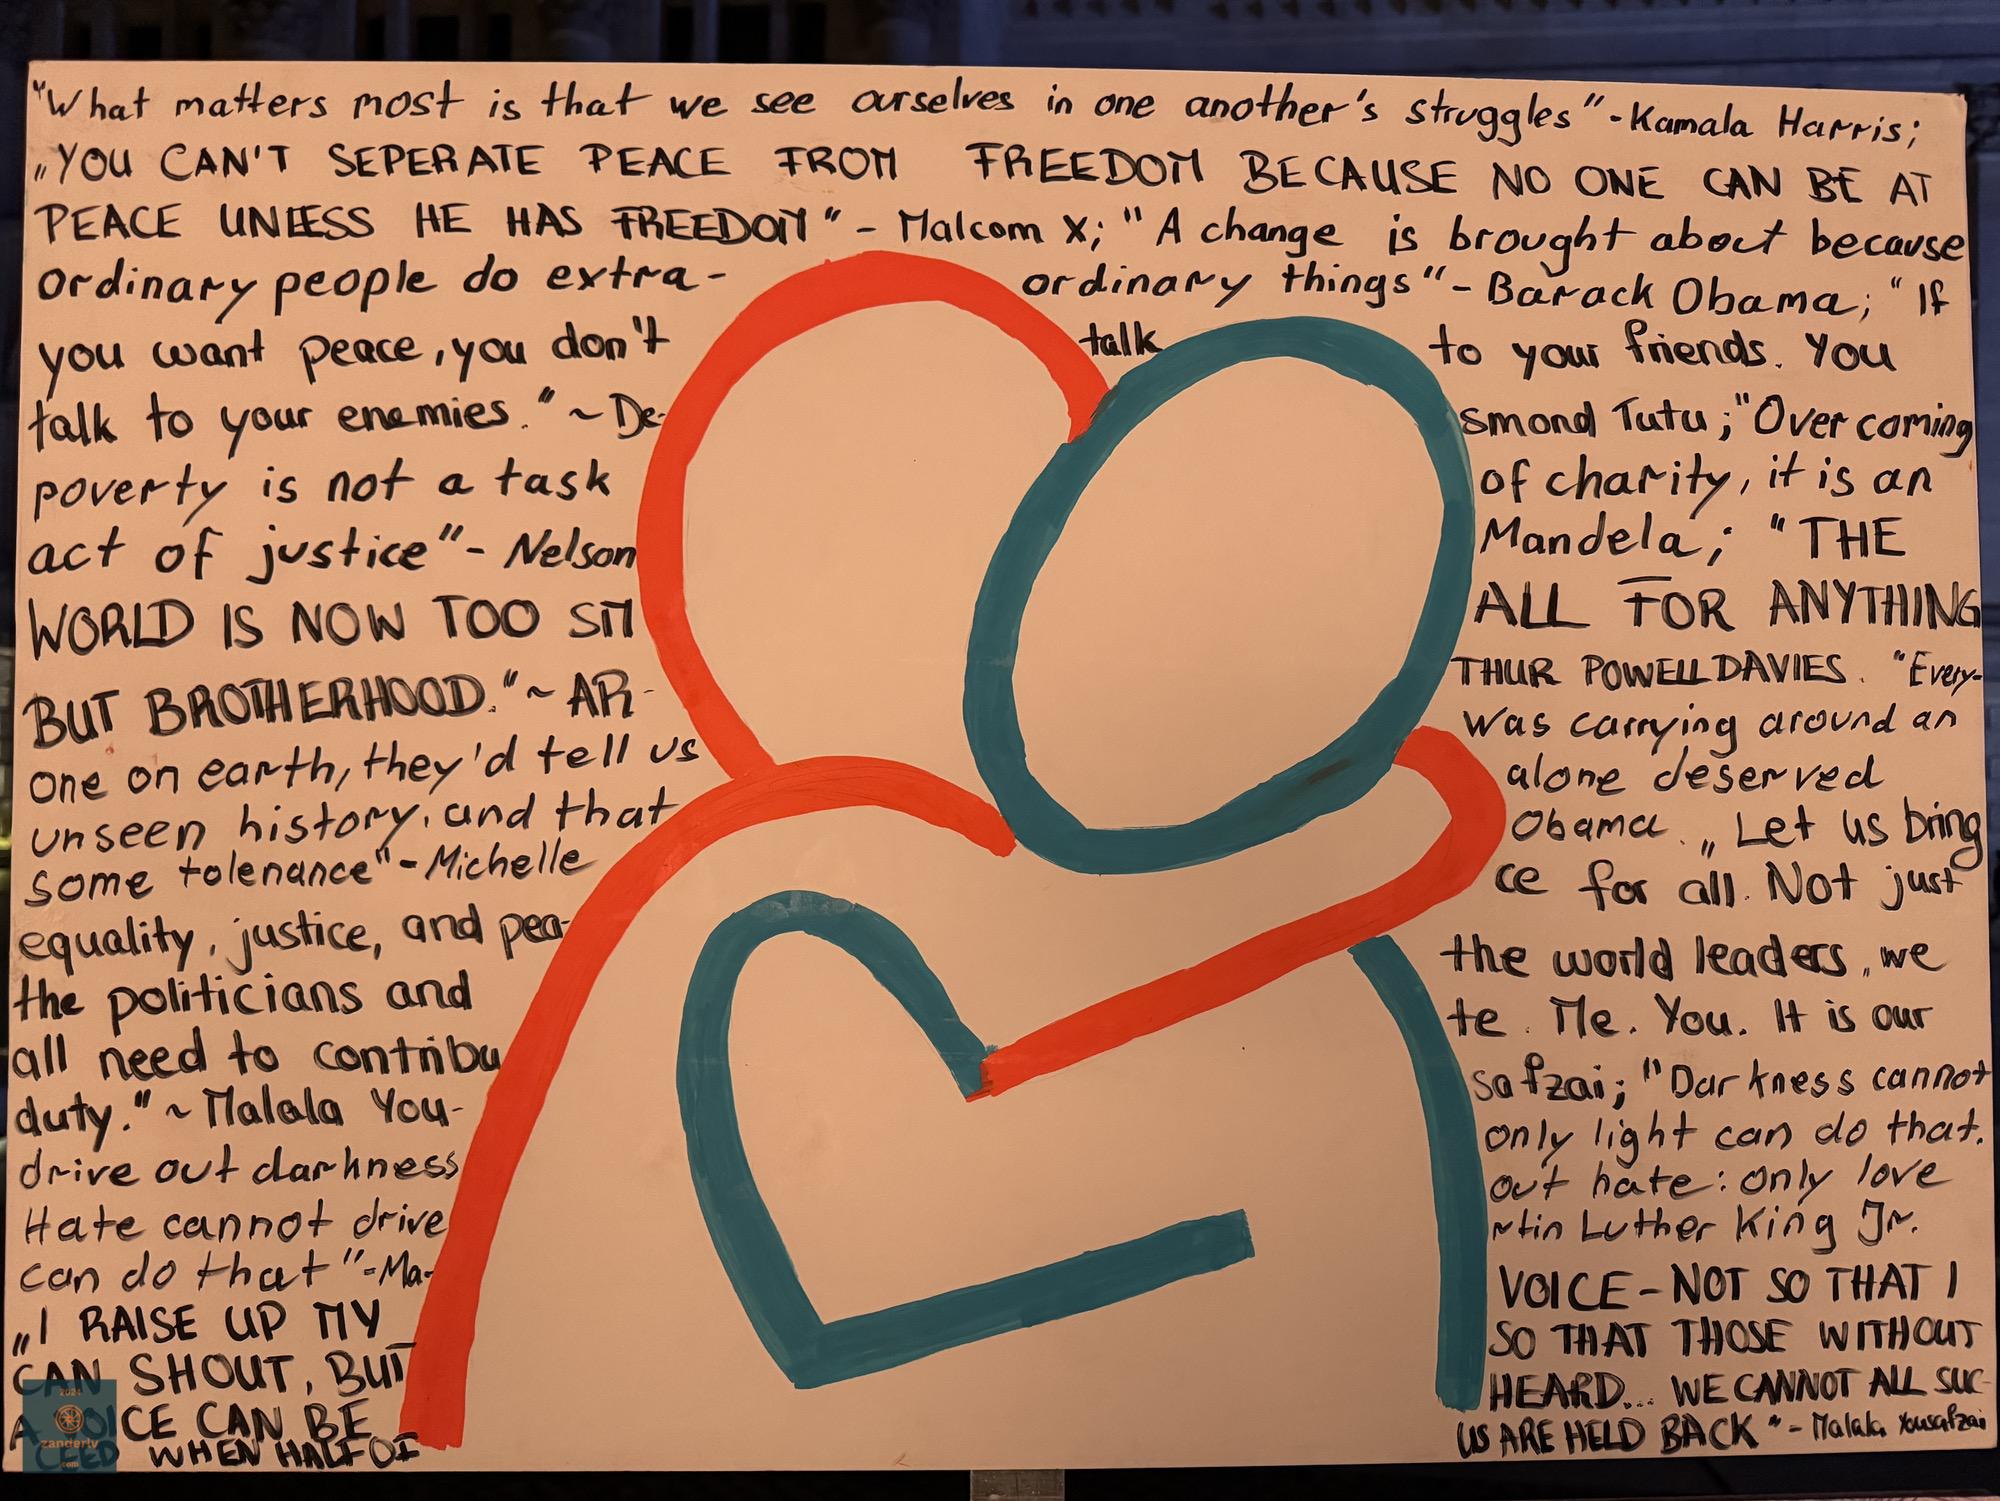 "What matters most is that we see ourselves in one another's struggles" - Kamala Harris;
„YOU CAN'T SEPERATE PEACE FROM FREEDOM BECAUSE NO ONE CAN BE AT
PEACE UNLESS HE HAS FREEDOM" - Malcom X; "A change is brought about because
ordinary people do extra- ordinary things" - Barack Obama; "If
you want peace, you don't talk to your friends. You
talk to your enemies." ~ De- smond Tutu; "Over coming
poverty is not a task of charity, it is an
act of justice" - Nelson Mandela; "THE
WORLD IS NOW TOO SM ALL FOR ANYTHING
BUT BROTHERHOOD." ~ AR- THUR POWELL DAVIES. "Every-
one on earth, they'd tell us was carrying around an
unseen history, and that alone deserved
some tolenance" - Michelle Obama. „Let us bring
equality, justice, and pea- ce for all. Not just
the politicians and the world leaders, we
all need to contribu te. Me. You. It is our
duty." ~ Malala You- safzai; "Darkness cannot
drive out darkness only light can do that.
Hate cannot drive out hate: only love
can do that" - Ma- rtin Luther King Jr.
„I RAISE UP MY VOICE - NOT SO THAT I
CAN SHOUT, BUT SO THAT THOSE WITHOUT
A VOICE CAN BE HEARD... WE CANNOT ALL SUC-
CEED WHEN HALF OF US ARE HELD BACK" - Malala Yousafzai
2024
zanderlv
.com